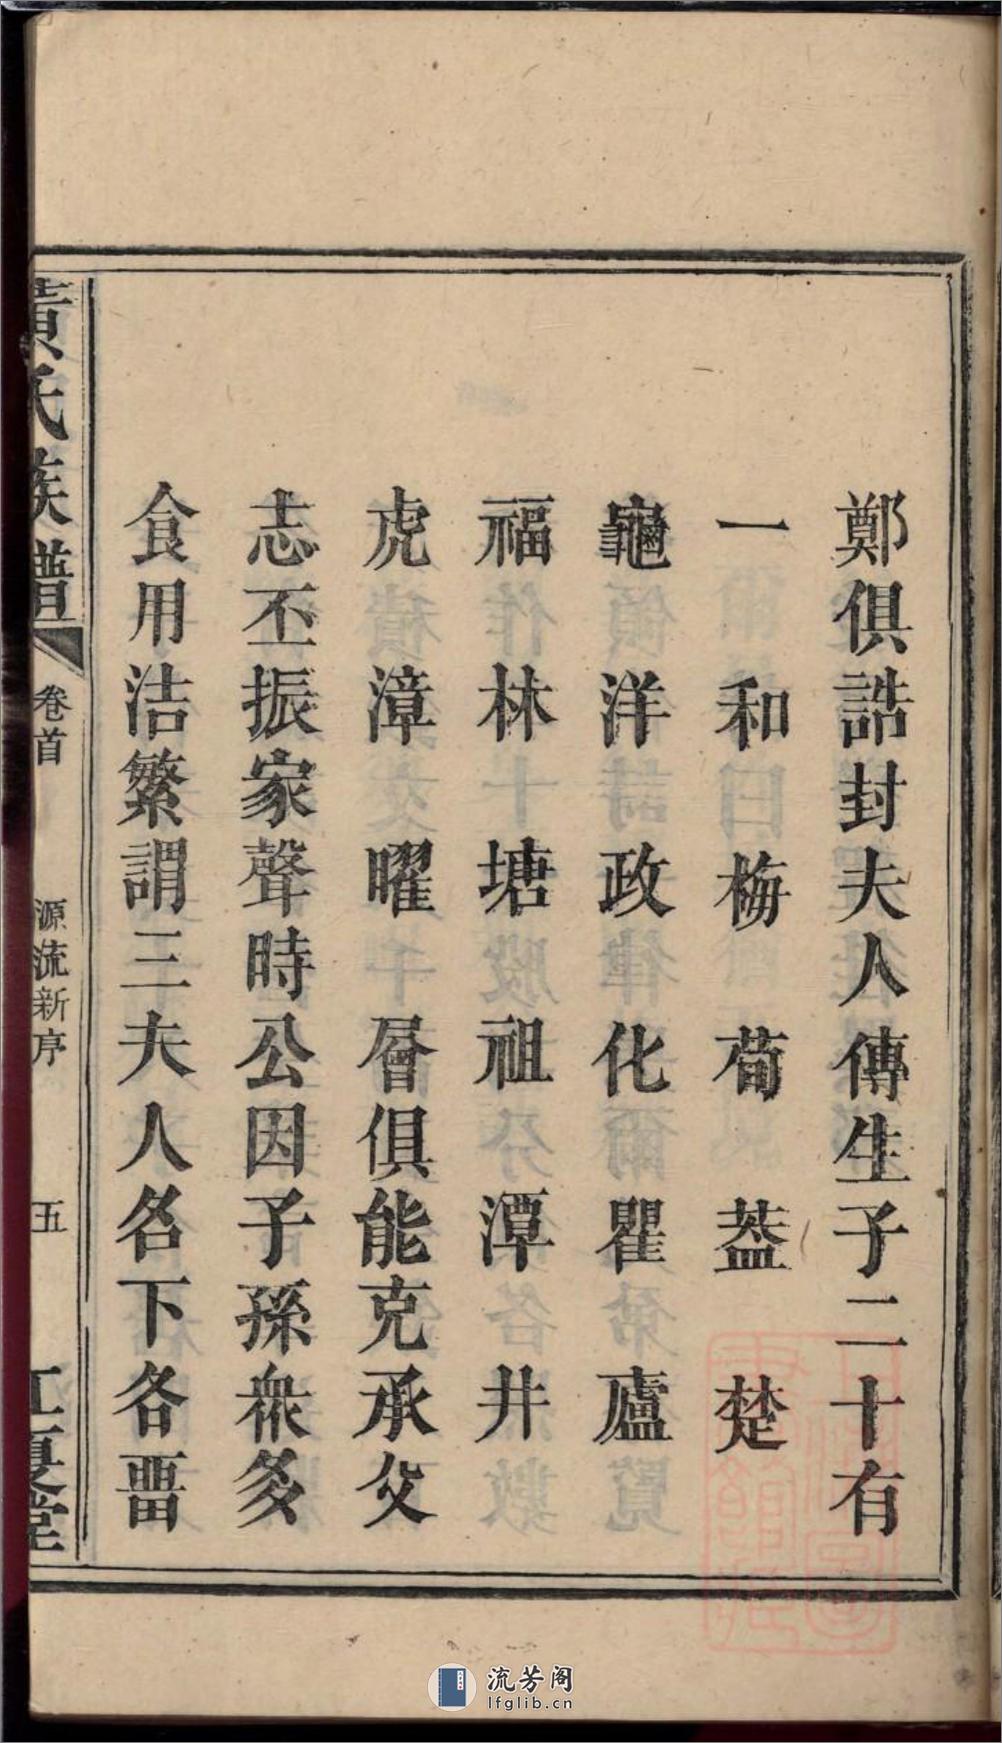 鄭俱誥封夫人傳生子二十有
一和梅荀葢楚
龜洋政化瞿廬
福林塘祖潭井
虎漳曜層俱能克承父
志丕振家聲時公因子孫衆多
食用洁繁謂三夫人名下各畱
黃氏族譜
卷首
源流新序
五
江夏堂
流芳阁
lfglib.cn